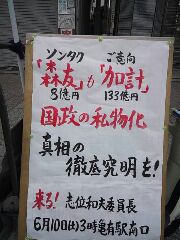 ソンタク ご意向
「森友」も「加計」
8億円 133億円
国政の私物化
真相の
徹底究明を!
来る! 志位和夫委員長
6月10日(土)3時亀有駅南口